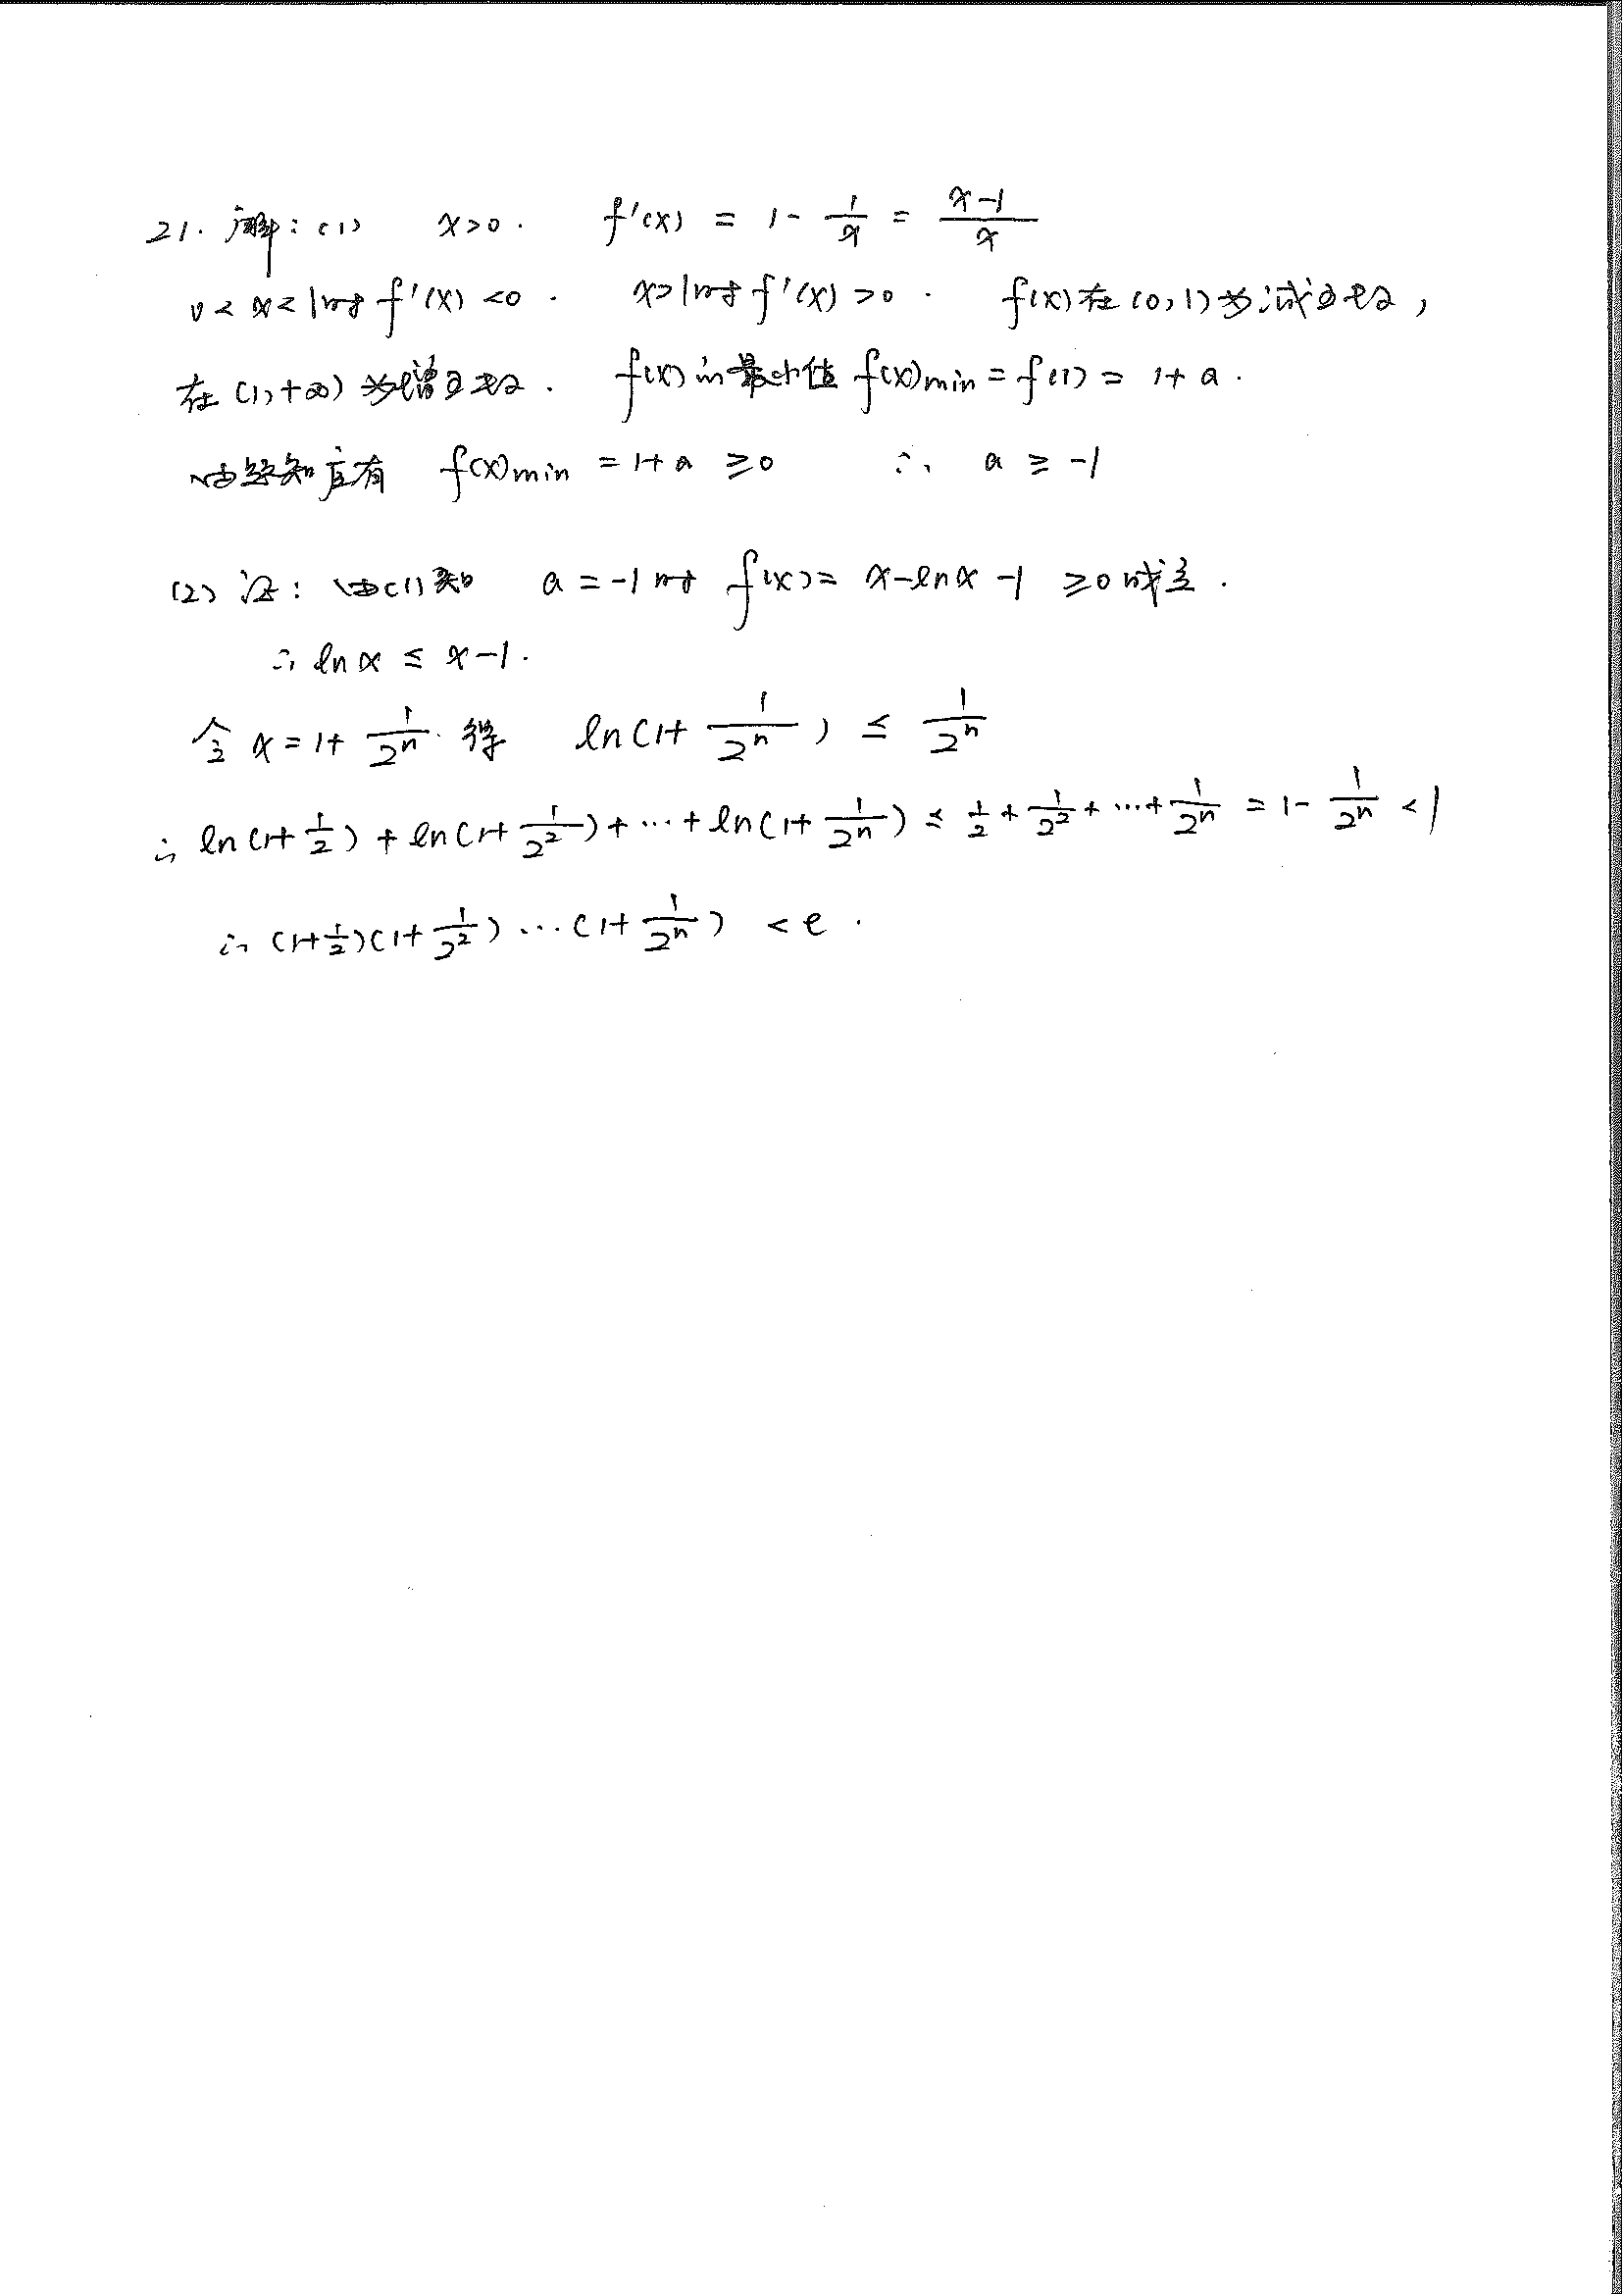 21. 解：(1)  x>0.  f'(x) = 1 - 1/x = (x-1)/x
0<x<1时 f'(x) <0.  x>1时 f'(x) >0.  f(x)在(0,1)为减函数，
在(1,+∞)为增函数.  f(x)的最小值 f(x)min = f(1) = 1+a.
由题知应有 f(x)min = 1+a ≥0  ∴ a ≥ -1
(2) 证：由(1)知 a = -1时 f(x) = x-lnx-1 ≥0成立.
∴ lnx ≤ x-1.
令 x = 1+ 1/2ⁿ 得 ln(1+ 1/2ⁿ) ≤ 1/2ⁿ
∴ ln(1+1/2) + ln(1+1/2²) + ⋯ + ln(1+1/2ⁿ) ≤ 1/2 + 1/2² + ⋯ + 1/2ⁿ = 1 - 1/2ⁿ < 1
∴ (1+1/2)(1+1/2²) ⋯ (1+1/2ⁿ) < e.